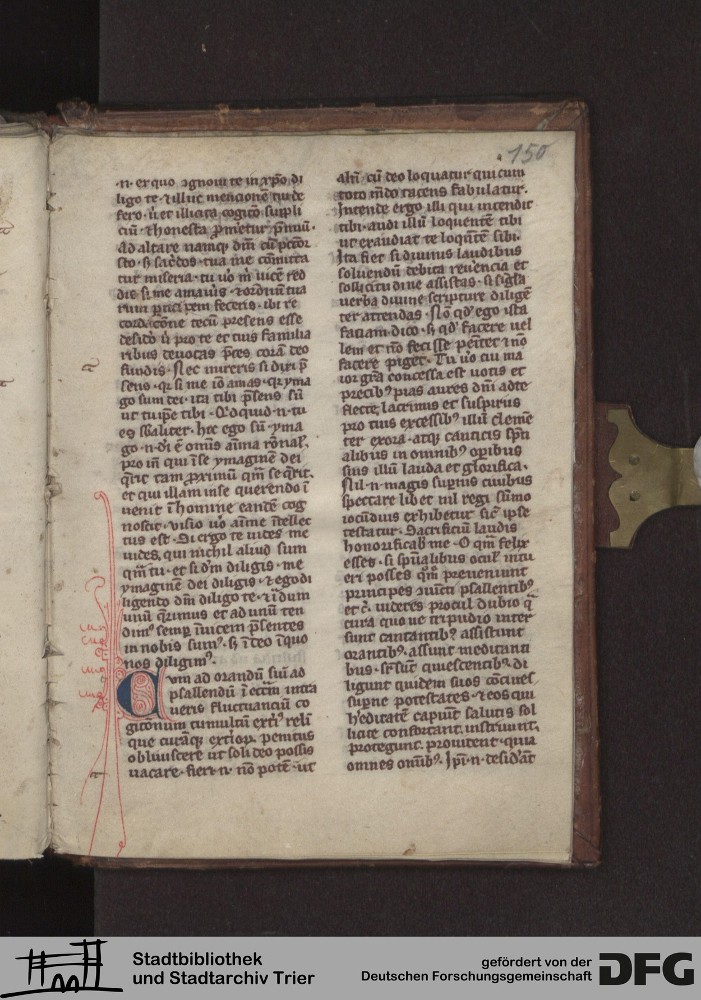 150
·n· ex quo ꝯgnoui te in xp̄o di
ligo te · ⁊ illuc mencionē tui de
fero · ů et illicita cogitō suppli
ciū · ⁊ honesta p̄meretur p̄miū ·
Ad altare namqꝫ dn̄i cū pctōr
sto · ꝫ sacdos · tua me comitta
tur miseria · tu ůo m̄ uicē red
dis si me amaůis · ⁊ orōnū tua
rum participem feceris · ibi re
cordacōne tecū presens esse
desido ů pro te et tuis familia
ribus deuotas p̄ces corā deo
fundis · Nec mireris si dixi p̄
sens · qꝛ si me io amas · qꝛ yma
go sum dei · ita tibi p̄sens sū
ut tu ip̄e tibi · Quodquid ·n· tu
es sb̄aliter · hoc ego sū · yma
go ·n· di ē omnis aīma rōnal ·
pro in̄ qui ī se ymaginē dei
q̄rit tam proximū qm̄ se q̄rit ·
et qui illam in se querendo ī
uenit ī homine eandē cog
noscit · visio ůo aīme ītellec
tus est · Si ergo te uides me
uides, qui nichil aliud sum
qm̄ tu · et si dm̄ diligis · me
ymaginē dei diligis · ⁊ ego di
ligendo dm̄ diligo te · ⁊ ī dum
unū q̄rimus et ad unū ten
dimꝰ semꝑ īuicem p̄sentes
in nobis sumꝰ · ꝫ ī deo ī quo
nos diligimꝰ ·
Cvm ad orandū ſuū ad
psallendū ī eccām intra
ueris fluctuanciū co
gitōnum tumultū extiꝰ reli
que curāqꝫ extioꝝ penitus
obliuiscere ut soli deo possis
uacare · fieri ·n· nō potē · ut
aliī cū deo loquatur qui cum
toto mūdo tacens fabulatur ·
Intende ergo illi qui intendit
tibi · audi illū loquentē tibi
ut exaudiat te loqūtē sibi ·
Ita fiet si diuinis laudibus
soluendū debita reuerēcia et
sollicitudine assistas · si sīgla
uerba diuine scripture diligē
ter attendas · Nō qd̓ ego ista
faciam · dico · ꝫ qd̓ facere uel
lem et nō fecisse penitet ⁊ nō
facere piget · Tu ůo cui ma
ior gra concessa est uotis et
precibꝰ pias aures dn̄i adte
flecte, lacrimis et suspiriis
pro tuis excessibꝰ illū clemē
ter exora · atqꝫ canticis sp̄ri
alibus in omnibꝰ opibus
suis illū lauda et glorifica ·
Nil ·n· magis supnis ciuibus
spectare libet nil regi sūmo
iocūdius exhibetur sic̄ ip̄se
testatur · Sacrificiū laudis
honorificabit me · O qm̄ felix
esses · si sp̄ualibus ocul̓ intu
eri posses quō preueniunt
principes ꝯiūcti psallentibꝰ
et c̄ · uideres procul dubio q̄
cura quo ue tripudio inter
sunt cantantibꝰ assistunt
orantibꝰ · assunt meditanti
bus · sup sunt quiescentibꝰ · di
ligunt quidem suos cōciues
supne potestates · ⁊ eos qui
h̓editatē capiunt salutis sol
licite confortant, instruunt,
protegunt · prouident · quia
omnes omibꝰ · Ip̄i ·n· desid̓āt
Stadtbibliothek
und Stadtarchiv Trier
gefördert von der
Deutschen Forschungsgemeinschaft
DFG